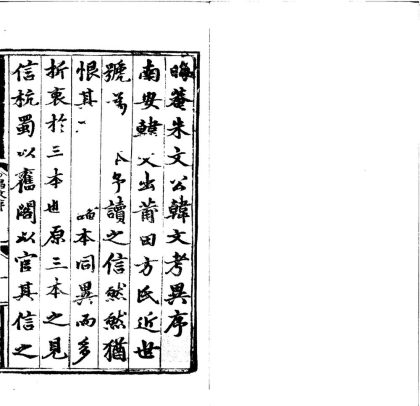 晦菴朱文公韓文考異序
南安韓文出莆田方氏近世
號 氏予讀之信然然猶
恨其 本同異而多
折衷於三本也原三本之見
信杭蜀以舊閣以官其信之